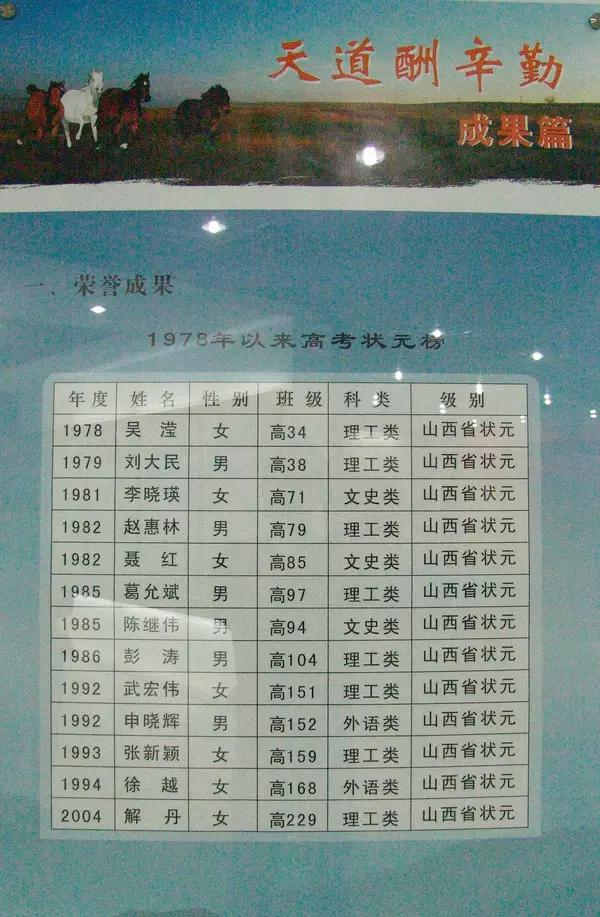 天道酬辛勤
成果篇
一、荣誉成果
1978年以来高考状元榜
年度 姓名 性别 班级 科类 级别
1978 吴滢 女 高34 理工类 山西省状元
1979 刘大民 男 高38 理工类 山西省状元
1981 李晓瑛 女 高71 文史类 山西省状元
1982 赵惠林 男 高79 理工类 山西省状元
1982 聂红 女 高85 文史类 山西省状元
1985 葛允斌 男 高97 理工类 山西省状元
1985 陈继伟 男 高94 文史类 山西省状元
1986 彭涛 男 高104 理工类 山西省状元
1992 武宏伟 女 高151 理工类 山西省状元
1992 申晓辉 男 高152 外语类 山西省状元
1993 张新颖 女 高159 理工类 山西省状元
1994 徐越 女 高168 外语类 山西省状元
2004 解丹 女 高229 理工类 山西省状元